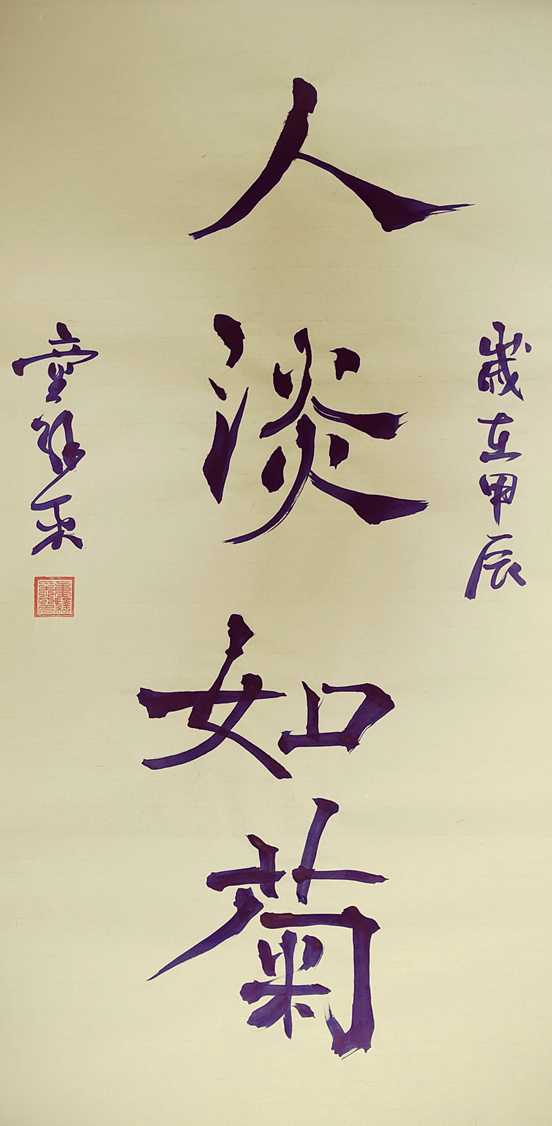 歲在甲辰
人淡如菊